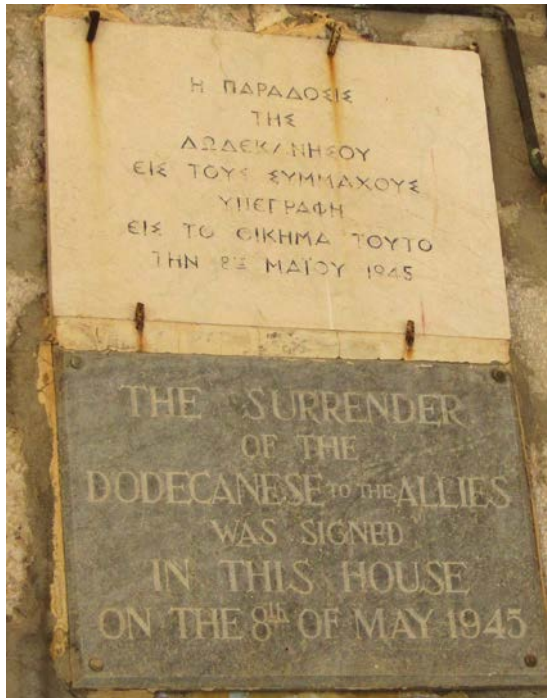 Η ΠΑΡΑΔΟΣΙΣ
ΤΗΣ
ΔΩΔΕΚΑΝΗΣΟΥ
ΕΙΣ ΤΟΥΣ ΣΥΜΜΑΧΟΥΣ
ΥΠΕΓΡΑΦΗ
ΕΙΣ ΤΟ ΟΙΚΗΜΑ ΤΟΥΤΟ
ΤΗΝ 8Σ ΜΑΪΟΥ 1945
THE SURRENDER
OF THE
DODECANESE TO THE ALLIES
WAS SIGNED
IN THIS HOUSE
ON THE 8th OF MAY 1945